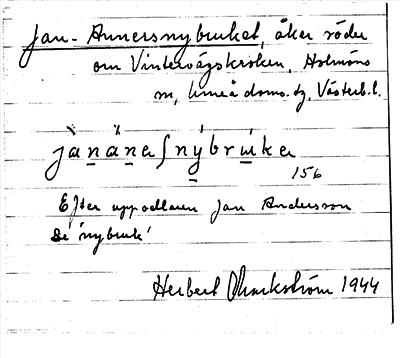 Jan-Annersnybruket, åker söder
om Vintervågskroken, Holmöns
sn, Umeå doms.sg, Västerb.l.
jànänaʃnýbruka
156
Efter uppodlaren Jan Andersson
Se 'nybruk'
Herbert Markström 1944